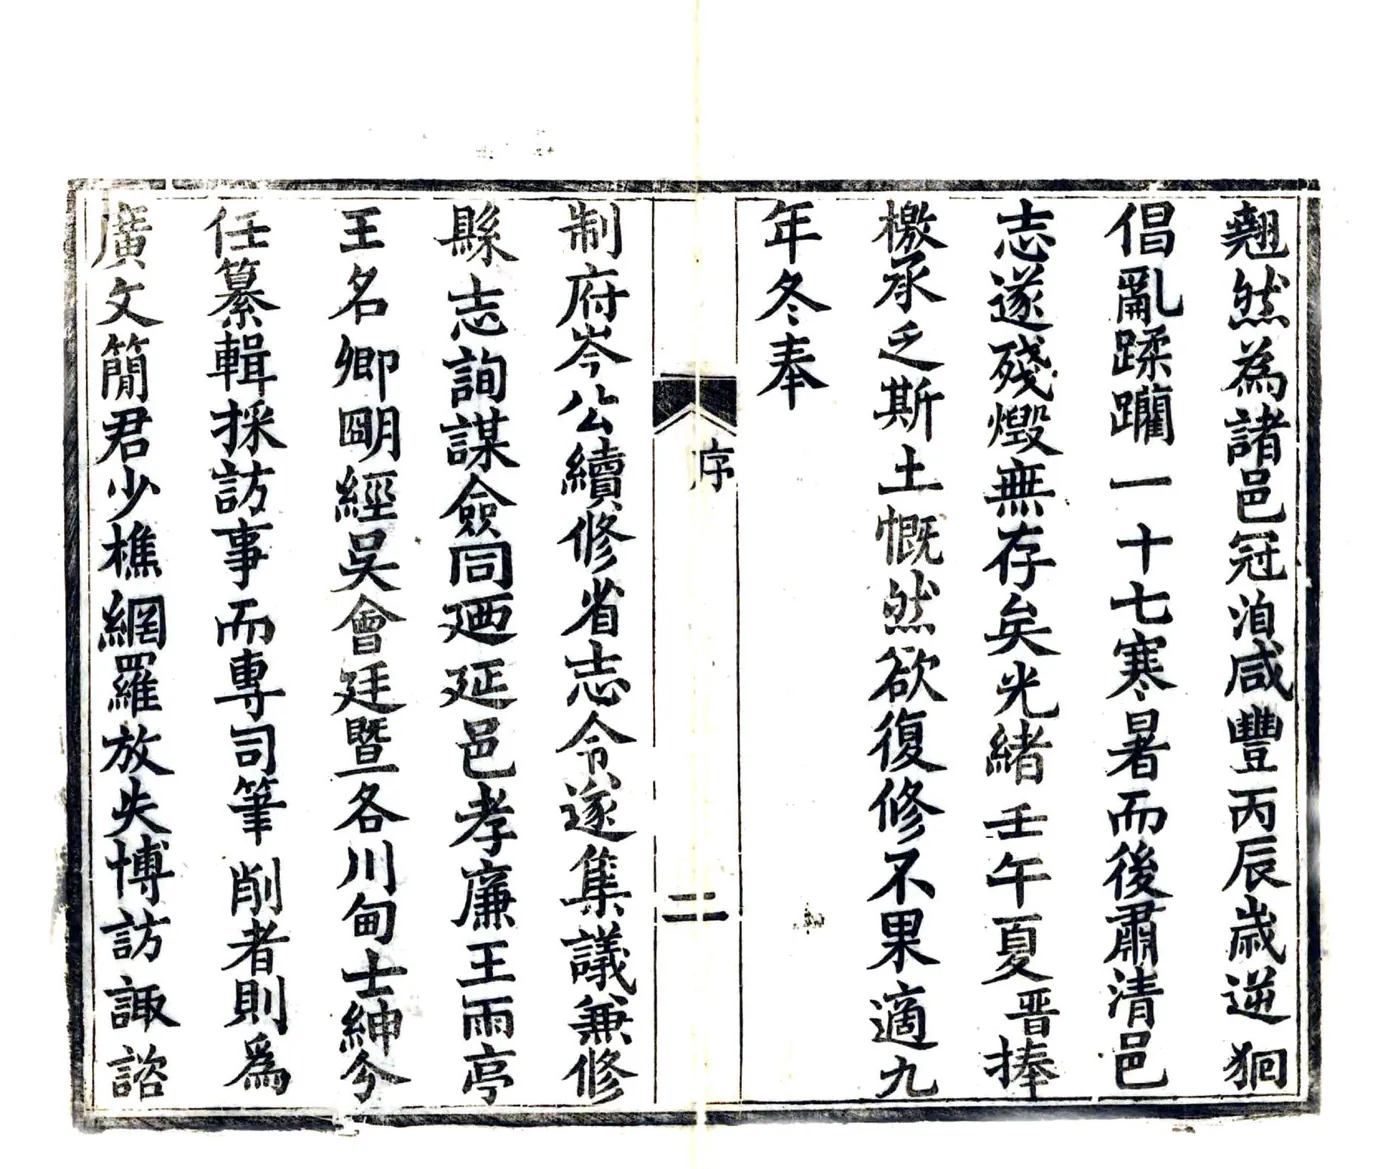 翹然為諸邑冠洎咸豐丙辰歲逆狪
倡亂蹂躪一十七寒暑而後肅清邑
志遂殘燬無存矣光緒壬午夏晋捧
檄承乏斯土慨然欲復修不果適九
年冬奉
序
二
制府岑公續修省志令遂集議兼修
縣志詢謀僉同廼延邑孝廉王雨亭
王名卿朙經吳會廷暨各川甸士紳分
任纂輯採訪事而專司筆削者則為
廣文簡君少樵網羅放失博訪諏諮